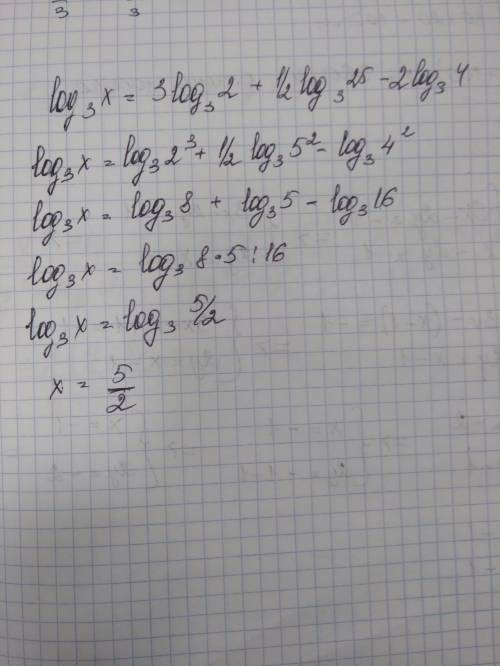 3 3
log₃x = 3log₃2 + 1/2 log₃25 - 2log₃4
log₃x = log₃2³ + 1/2 log₃5² - log₃4²
log₃x = log₃8 + log₃5 - log₃16
log₃x = log₃ 8·5:16
log₃x = log₃ 5/2
x = 5/2